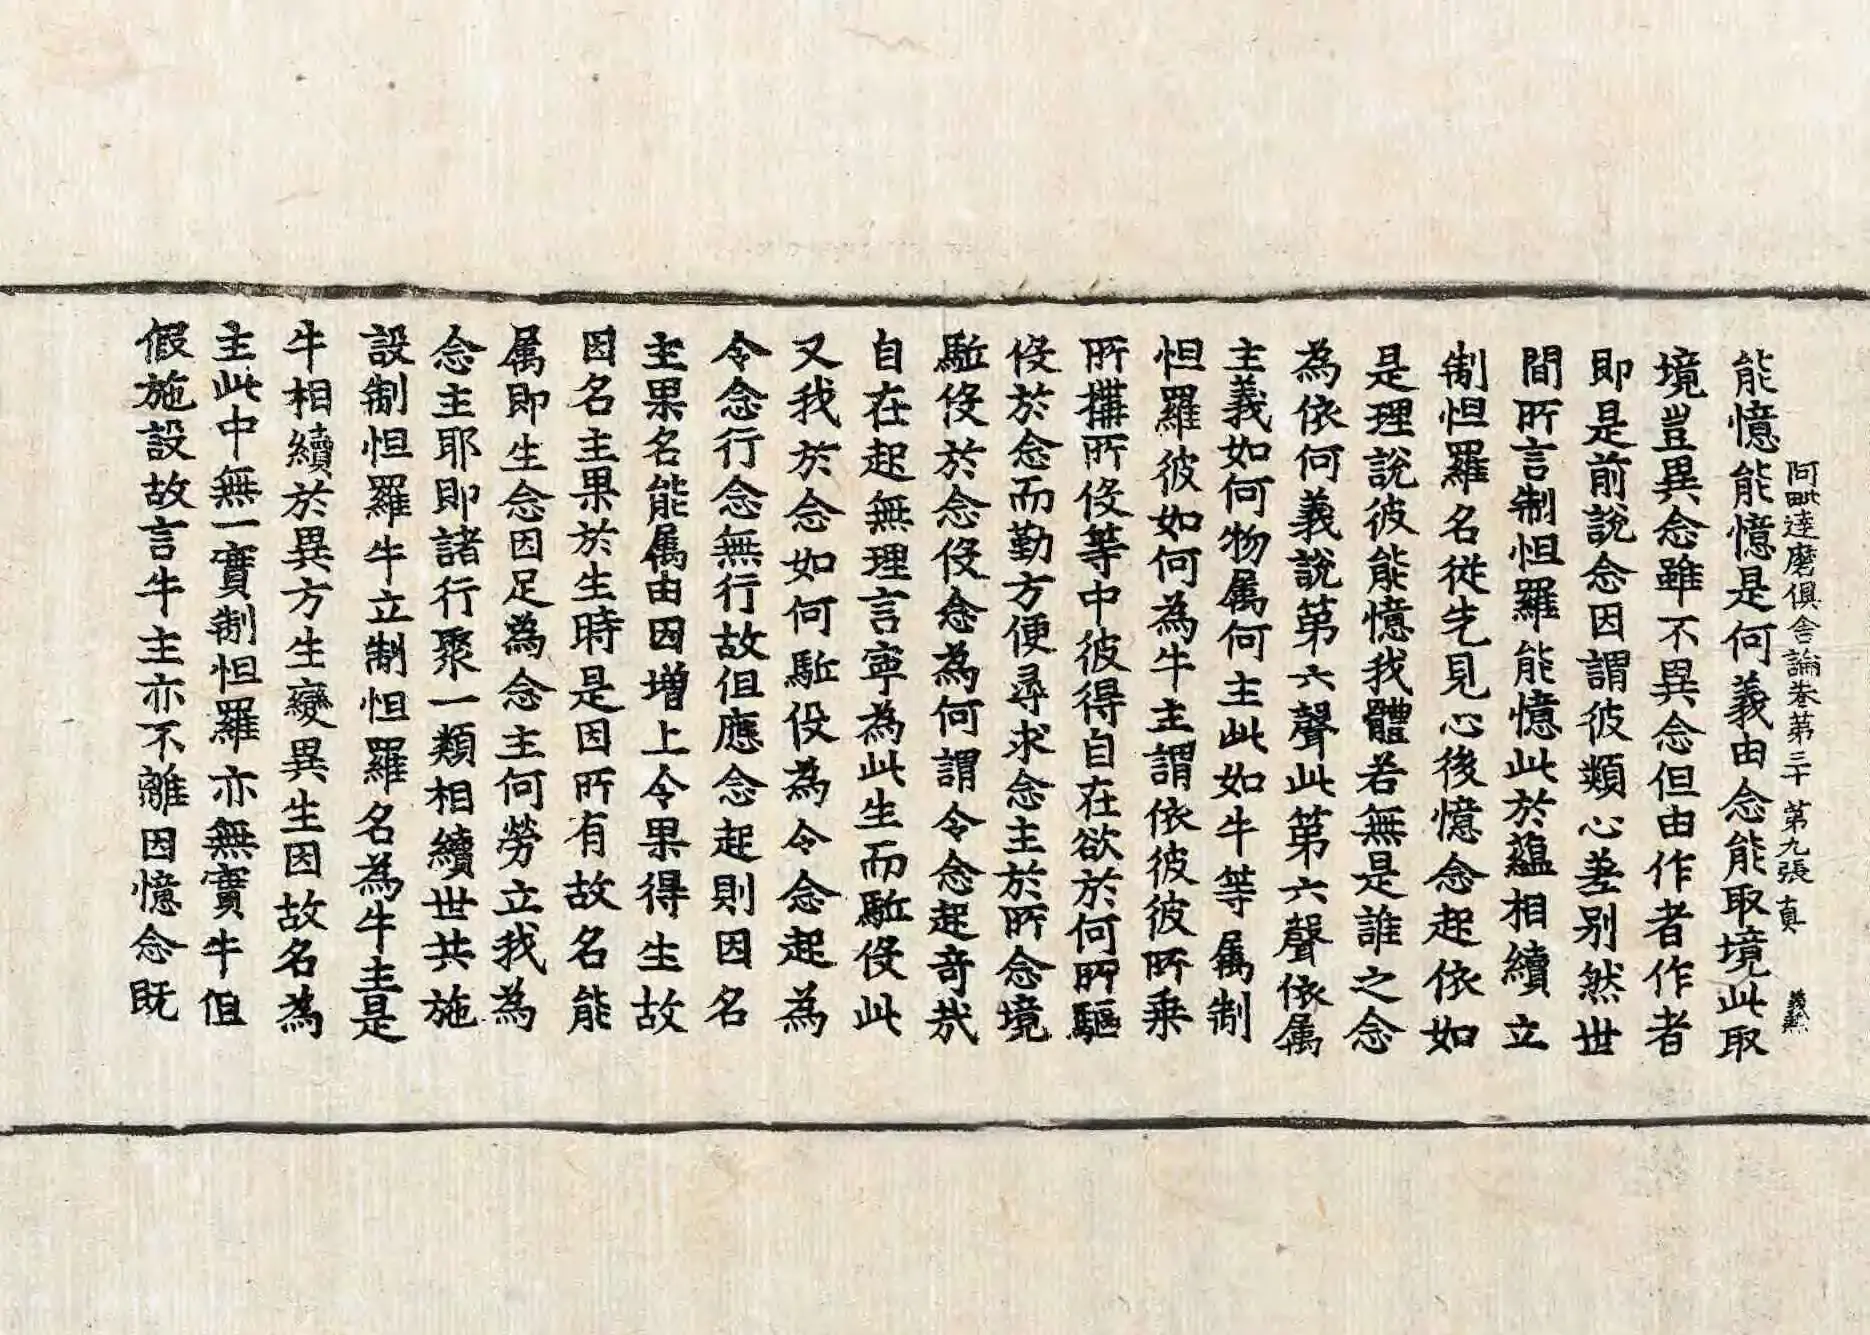 阿毗達磨俱舍論卷第三十 第九張 真 義熙
能憶能憶是何義由念能取境此取
境豈異念雖不異念但由作者作者
即是前說念因謂彼類心差別然世
間所言制怛羅能憶此於蘊相續立
制怛羅名從先見心後憶念起依如
是理說彼能憶我體若無是誰之念
為依何義說第六聲此第六聲依属
主義如何物属何主此如牛等属制
怛羅彼如何為牛主謂依彼彼所乗
所擽所役等中彼得自在欲於何所驅
役於念而勤方便尋求念主於所念境
駈役於念役念為何謂令念起奇哉
自在起無理言寧為此生而駈役此
又我於念如何駈役為令念起為
令念行念無行故但應念起則因名
主果名能属由因增上令果得生故
因名主果於生時是因所有故名能
属即生念因足為念主何勞立我為
念主耶即諸行聚一類相續世共施
設制怛羅牛立制怛羅名為牛主是
牛相續於異方生變異生因故名為
主此中無一實制怛羅亦無實牛但
假施設故言牛主亦不離因憶念既